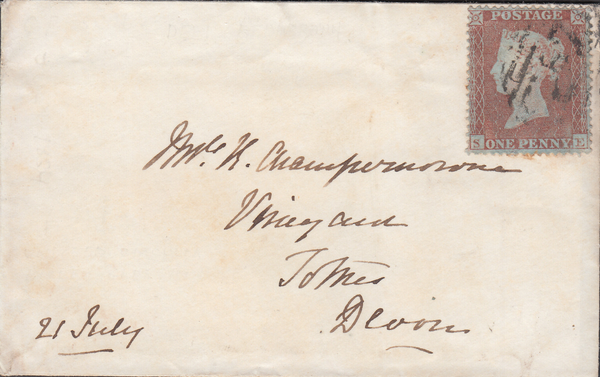 POSTAGE
S ONE PENNY E
H. Champernowne
Vineyard
Totnes
Devon
21 July